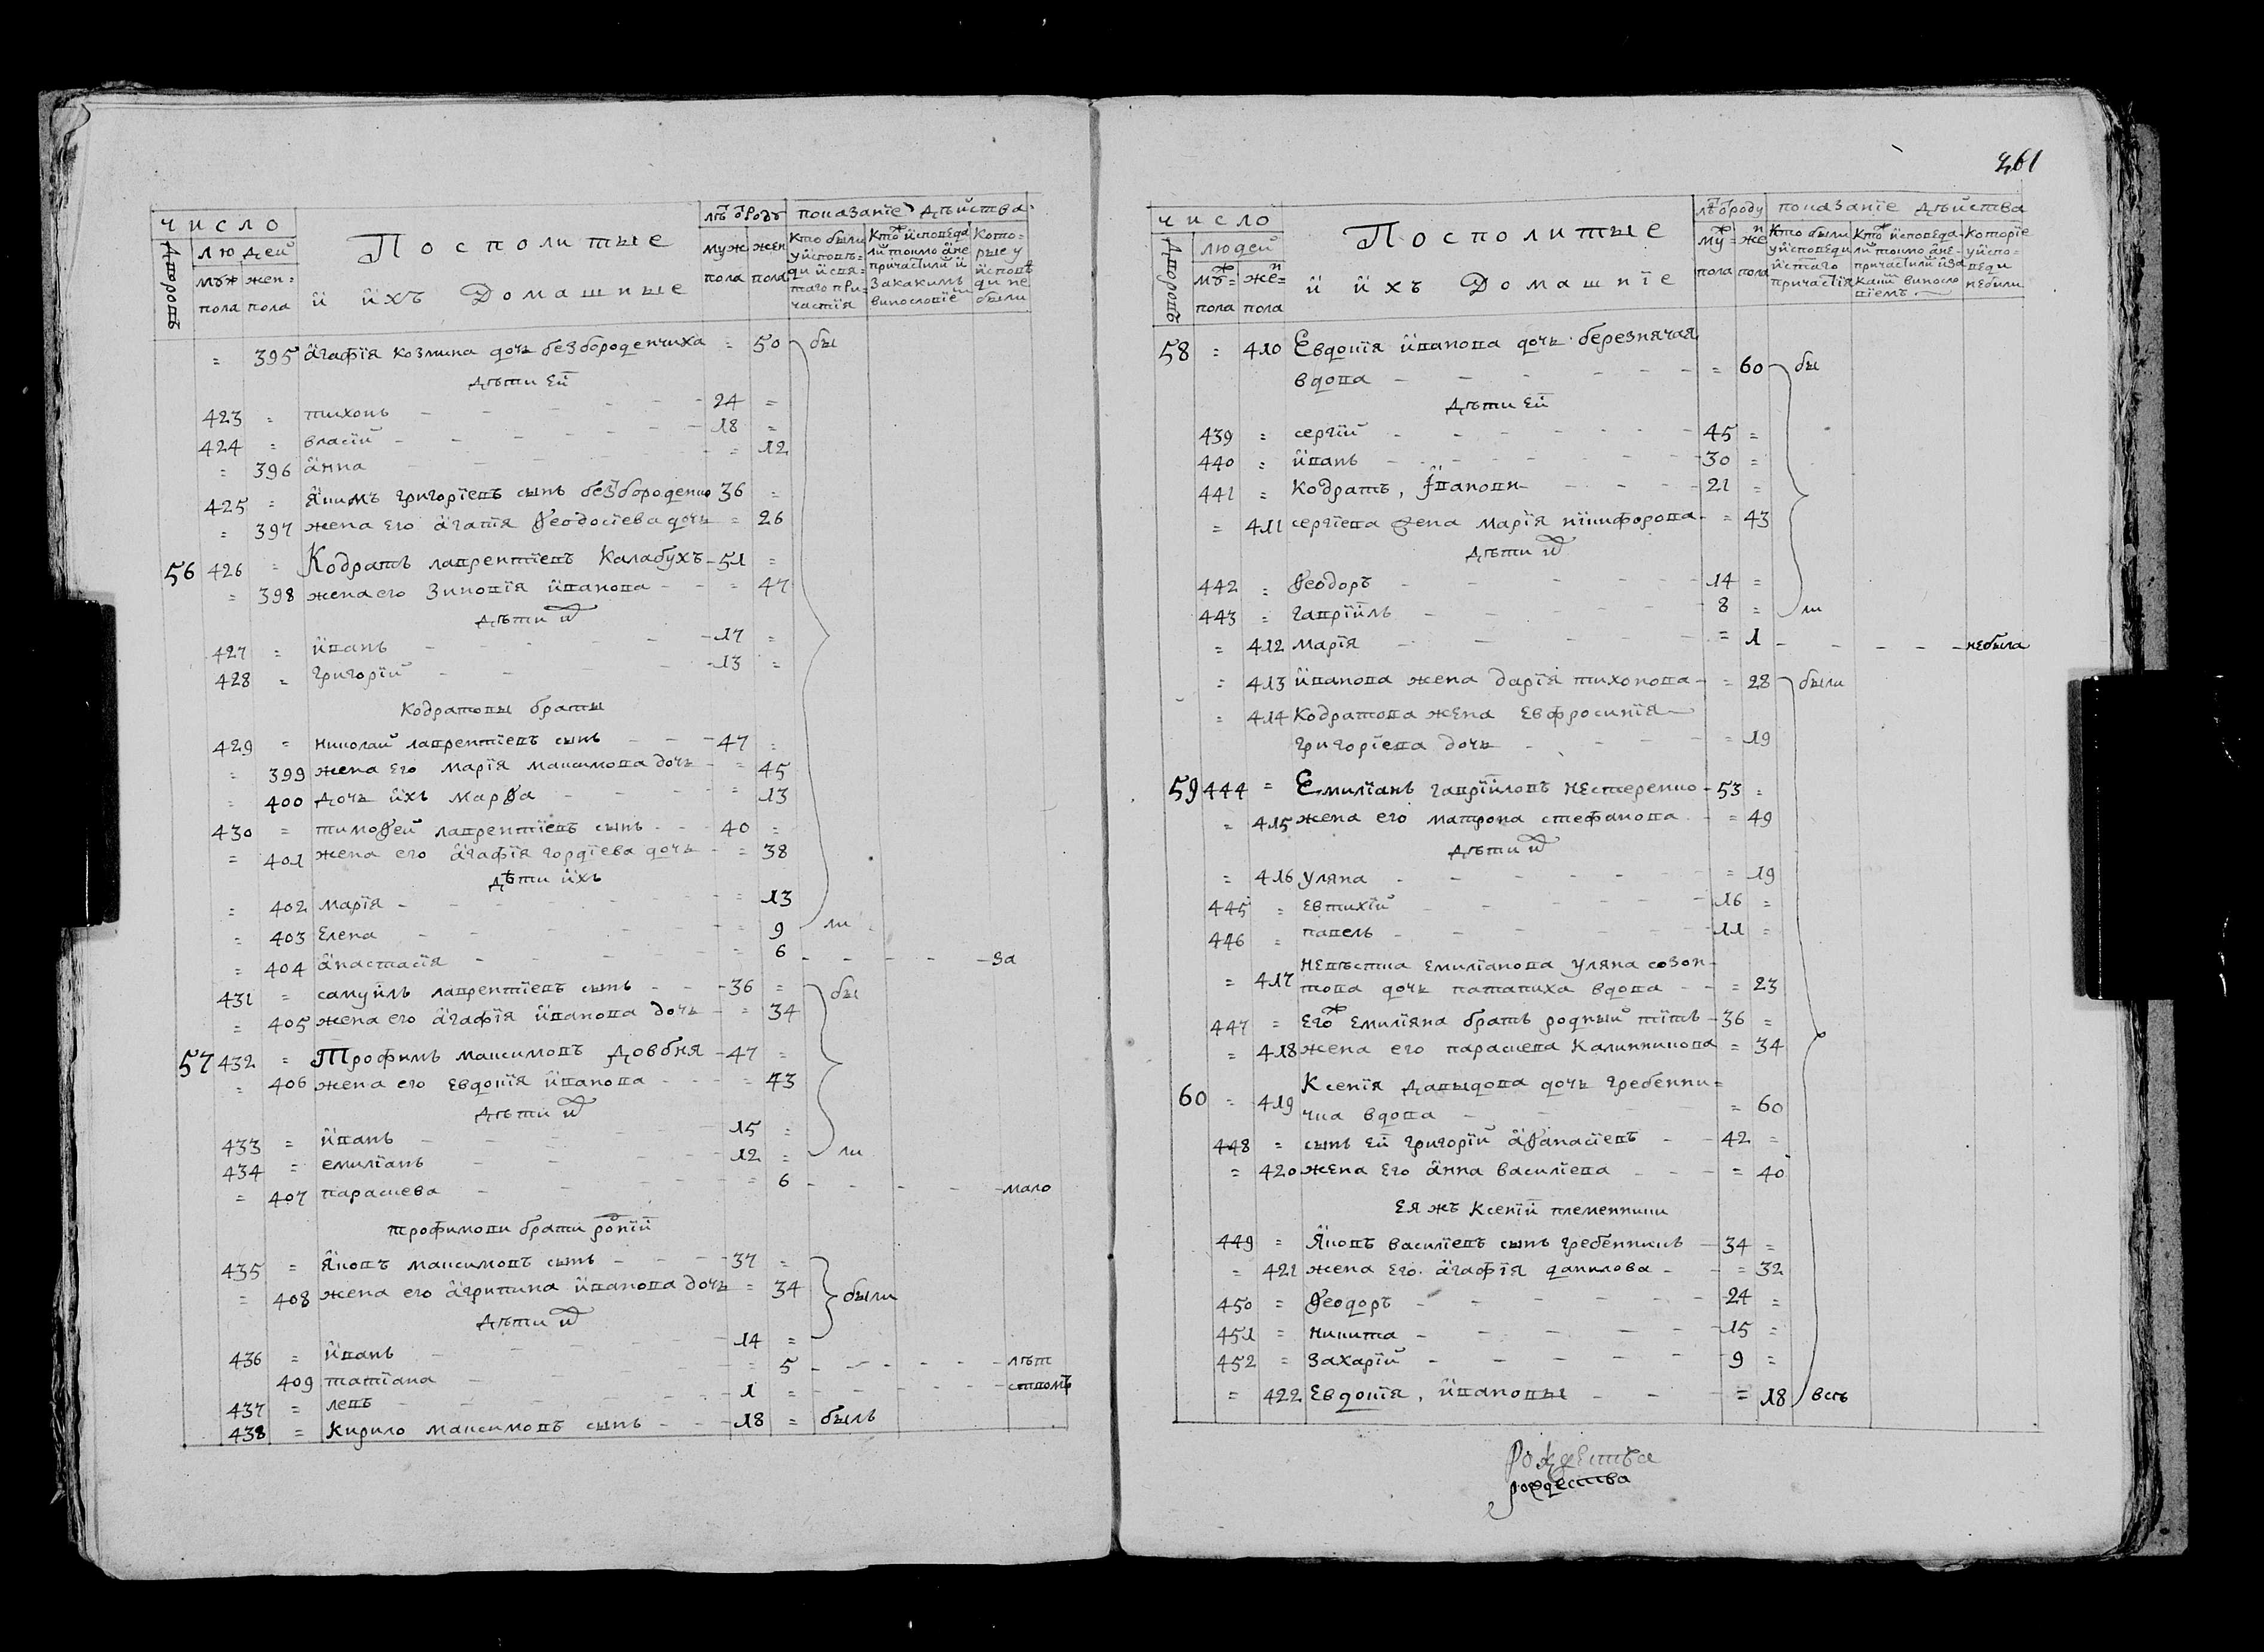 число
людей
Дворовъ
мѫж пола
жен= пола
Посполитые
й йхъ Домашные
лѣтъ ѿроду
муж пола
жен пола
показанїе дѣйства
Кто были у йсповѣ= ди й свя= таго при= частїя
Кто йсповѣда ли токмо ане причастили й Закакимъ винословїе
Кото= рые у йсповѣ ди не были
= 395 агафїя козмина дочь безбородечиха = 50 бы
дѣти ей
423 = тихонъ 24 =
424 = власїй 18 =
= 396 анна = 12
425 = якимъ григорїевъ сынъ безбороденко 36 =
= 397 жена его агапїя Ѳеодосїева дочь = 26
56 426 = Кодратъ лаврентїевъ Калабухъ 51 =
= 398 жена его Зиновїя йванова = 47
дѣти й
427 = йванъ 17 =
428 = григорїй 13 =
Кодратовы браты
429 = николай лаврентїевъ сынъ 47 =
= 399 жена его марїя максимова дочь = 45
= 400 дочь йхъ марѳа = 13
430 = тимоѳей лаврентїевъ сынъ 40 =
= 401 жена его агафїя гордїева дочь = 38
дѣти йхъ
= 402 марїя = 13
= 403 Елена = 9 ли
= 404 анастасїя = 6 за
431 = самуйлъ лаврентїевъ сынъ 36 = бы
= 405 жена его агафїя йванова дочь = 34
57 432 = Трофимъ максимовъ Довбня 47 =
= 406 жена его Евдокїя йванова = 43
дѣти й
433 = йванъ 15 =
434 = емилїанъ 12 = ли
= 407 параскева = 6 мало
трофимови брати ронїй
435 = яковъ максимовъ сынъ 37 =
= 408 жена его агрипина йванова дочь = 34 были
дѣти й
436 = йванъ 14 =
409 татїана = 5 лѣт
437 = левъ 1 = ствомъ
438 = Кирило максимовъ сынъ 18 = былъ
461
число
людей
Дворовъ
мѫж= пола
жен= пола
Посполитые
й йхъ Домашнїе
лѣтъ ѿроду
муж= пола
жен пола
показанїе дѣйства
Кто были уйсповеди йстаго причастїя
Кто йсповеда- ли токмо ане- причастили йза каким виносло вїемъ
Которїе уйспо- веди небили
58 = 410 Евдокїя йванова дочь березнячая
вдова = 60 бы
дѣти ей
439 = сергїй 45 =
440 = йванъ 30 =
441 = Кодратъ, йванови 21 =
= 411 сергїева жена марїя никифорова = 43
дѣти й
442 = Ѳеодоръ 14 =
443 = гаврїйлъ 8 = ли
= 412 марїя = 1 небыла
= 413 йванова жена дарїя тихонова = 28 были
= 414 Кодратова жена Евфросинїя
григорїева дочь = 19
59 444 = Емилїанъ гаврїйловъ нестеренко 53 =
= 415 жена его матрона стефанова = 49
дѣти й
= 416 уляна = 19
445 = евтихїй 16 =
446 = павелъ 11 =
= 417 невѣстка емилїанова уляна созон-
това дочь патапиха вдова = 23
447 = егож емилїяна братъ родный тїтъ 36 =
= 418 жена его параскева Калинникова = 34
60 = 419 Ксенїя давыдова дочь гребенни=
чка вдова = 60
448 = сынъ ей григорїй аѳанасїевъ 42 =
= 420 жена его анна василїева = 40
Ея жъ Ксенїй племенники
449 = яковъ василїевъ сынъ гребенникъ 34 =
= 421 жена его агафїя данилова = 32
450 = Ѳеодоръ 24 =
451 = никита 15 =
452 = захарїй 9 =
= 422 Евдокїя, йвановы = 18 всѣ
Рождества
рождества